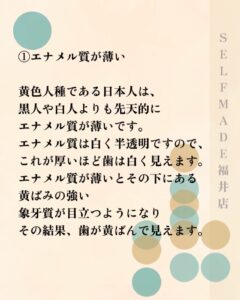 ①エナメル質が薄い
黄色人種である日本人は、
黒人や白人よりも先天的に
エナメル質が薄いです。
エナメル質は白く半透明ですので、
これが厚いほど歯は白く見えます。
エナメル質が薄いとその下にある
黄ばみの強い
象牙質が目立つようになり
その結果、歯が黄ばんで見えます。
SELFMADE福井店